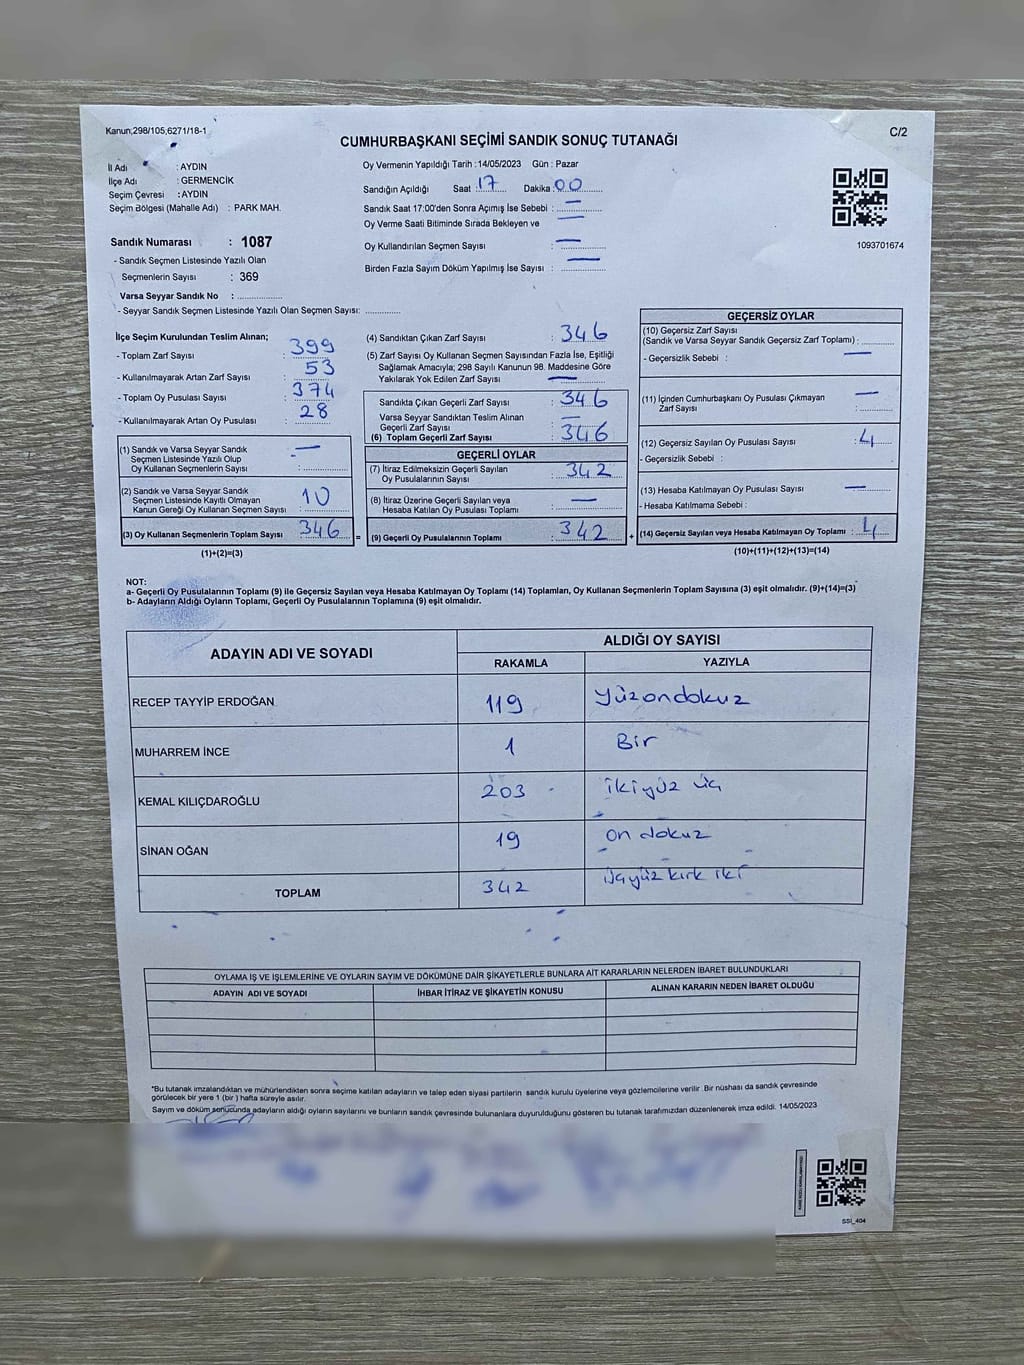 Kanun,298/105,6271/18-1
C/2
CUMHURBAŞKANI SEÇİMİ SANDIK SONUÇ TUTANAĞI
İl Adı : AYDIN
İlçe Adı : GERMENCİK
Seçim Çevresi : AYDIN
Seçim Bölgesi (Mahalle Adı) : PARK MAH.
Sandık Numarası : 1087
- Sandık Seçmen Listesinde Yazılı Olan
Seçmenlerin Sayısı : 369
Varsa Seyyar Sandık No :
- Seyyar Sandık Seçmen Listesinde Yazılı Olan Seçmen Sayısı:
Oy Vermenin Yapıldığı Tarih : 14/05/2023 Gün : Pazar
Sandığın Açıldığı Saat 17 Dakika : 00
Sandık Saat 17:00'den Sonra Açımış İse Sebebi : —
Oy Verme Saati Bitiminde Sırada Bekleyen ve —
Oy Kullandırılan Seçmen Sayısı : —
Birden Fazla Sayım Döküm Yapılmış İse Sayısı : —
1093701674
İlçe Seçim Kurulundan Teslim Alınan;
- Toplam Zarf Sayısı : 399
- Kullanılmayarak Artan Zarf Sayısı : 53
- Toplam Oy Pusulası Sayısı : 374
- Kullanılmayarak Artan Oy Pusulası : 28
(1) Sandık ve Varsa Seyyar Sandık
Seçmen Listesinde Yazılı Olup
Oy Kullanan Seçmenlerin Sayısı : —
(2) Sandık ve Varsa Seyyar Sandık
Seçmen Listesinde Kayıtlı Olmayan
Kanun Gereği Oy Kullanan Seçmen Sayısı : 10
(3) Oy Kullanan Seçmenlerin Toplam Sayısı : 346
(1)+(2)=(3)
(4) Sandıktan Çıkan Zarf Sayısı : 346
(5) Zarf Sayısı Oy Kullanan Seçmen Sayısından Fazla İse, Eşitliği
Sağlamak Amacıyla; 298 Sayılı Kanunun 98. Maddesine Göre
Yakılarak Yok Edilen Zarf Sayısı : —
Sandıkta Çıkan Geçerli Zarf Sayısı : 346
Varsa Seyyar Sandıktan Teslim Alınan
Geçerli Zarf Sayısı : —
(6) Toplam Geçerli Zarf Sayısı : 346
GEÇERLİ OYLAR
(7) İtiraz Edilmeksizin Geçerli Sayılan
Oy Pusulalarının Sayısı : 342
(8) İtiraz Üzerine Geçerli Sayılan veya
Hesaba Katılan Oy Pusulası Toplamı : —
= (9) Geçerli Oy Pusulalarının Toplamı : 342
GEÇERSİZ OYLAR
(10) Geçersiz Zarf Sayısı
(Sandık ve Varsa Seyyar Sandık Geçersiz Zarf Toplamı) :
- Geçersizlik Sebebi : —
(11) İçinden Cumhurbaşkanı Oy Pusulası Çıkmayan
Zarf Sayısı : —
(12) Geçersiz Sayılan Oy Pusulası Sayısı : 4
- Geçersizlik Sebebi :
(13) Hesaba Katılmayan Oy Pusulası Sayısı : —
- Hesaba Katılmama Sebebi :
+ (14) Geçersiz Sayılan veya Hesaba Katılmayan Oy Toplamı : 4
(10)+(11)+(12)+(13)=(14)
NOT:
a- Geçerli Oy Pusulalarının Toplamı (9) ile Geçersiz Sayılan veya Hesaba Katılmayan Oy Toplamı (14) Toplamları, Oy Kullanan Seçmenlerin Toplam Sayısına (3) eşit olmalıdır. (9)+(14)=(3)
b- Adayların Aldığı Oyların Toplamı, Geçerli Oy Pusulalarının Toplamına (9) eşit olmalıdır.
ADAYIN ADI VE SOYADI
ALDIĞI OY SAYISI
RAKAMLA YAZIYLA
RECEP TAYYİP ERDOĞAN 119 Yüzondokuz
MUHARREM İNCE 1 Bir
KEMAL KILIÇDAROĞLU 203 ikiyüz üç
SİNAN OĞAN 19 on dokuz
TOPLAM 342 üçyüz kırk iki
OYLAMA İŞ VE İŞLEMLERİNE VE OYLARIN SAYIM VE DÖKÜMÜNE DAİR ŞİKAYETLERLE BUNLARA AİT KARARLARIN NELERDEN İBARET BULUNDUKLARI
ADAYIN ADI VE SOYADI İHBAR İTİRAZ VE ŞİKAYETİN KONUSU ALINAN KARARIN NEDEN İBARET OLDUĞU
"Bu tutanak imzalandıktan ve mühürlendikten sonra seçime katılan adayların ve talep eden siyasi partilerin sandık kurulu üyelerine veya gözlemcilerine verilir. Bir nüshası da sandık çevresinde
görülecek bir yere 1 (bir ) hafta süreyle asılır.
Sayım ve döküm sonucunda adayların aldığı oyların sayılarını ve bunların sandık çevresinde bulunanlara duyurulduğunu gösteren bu tutanak tarafımızdan düzenlenerek imza edildi. 14/05/2023
SSI_404